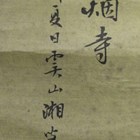 烟寺
夏日雲山湘